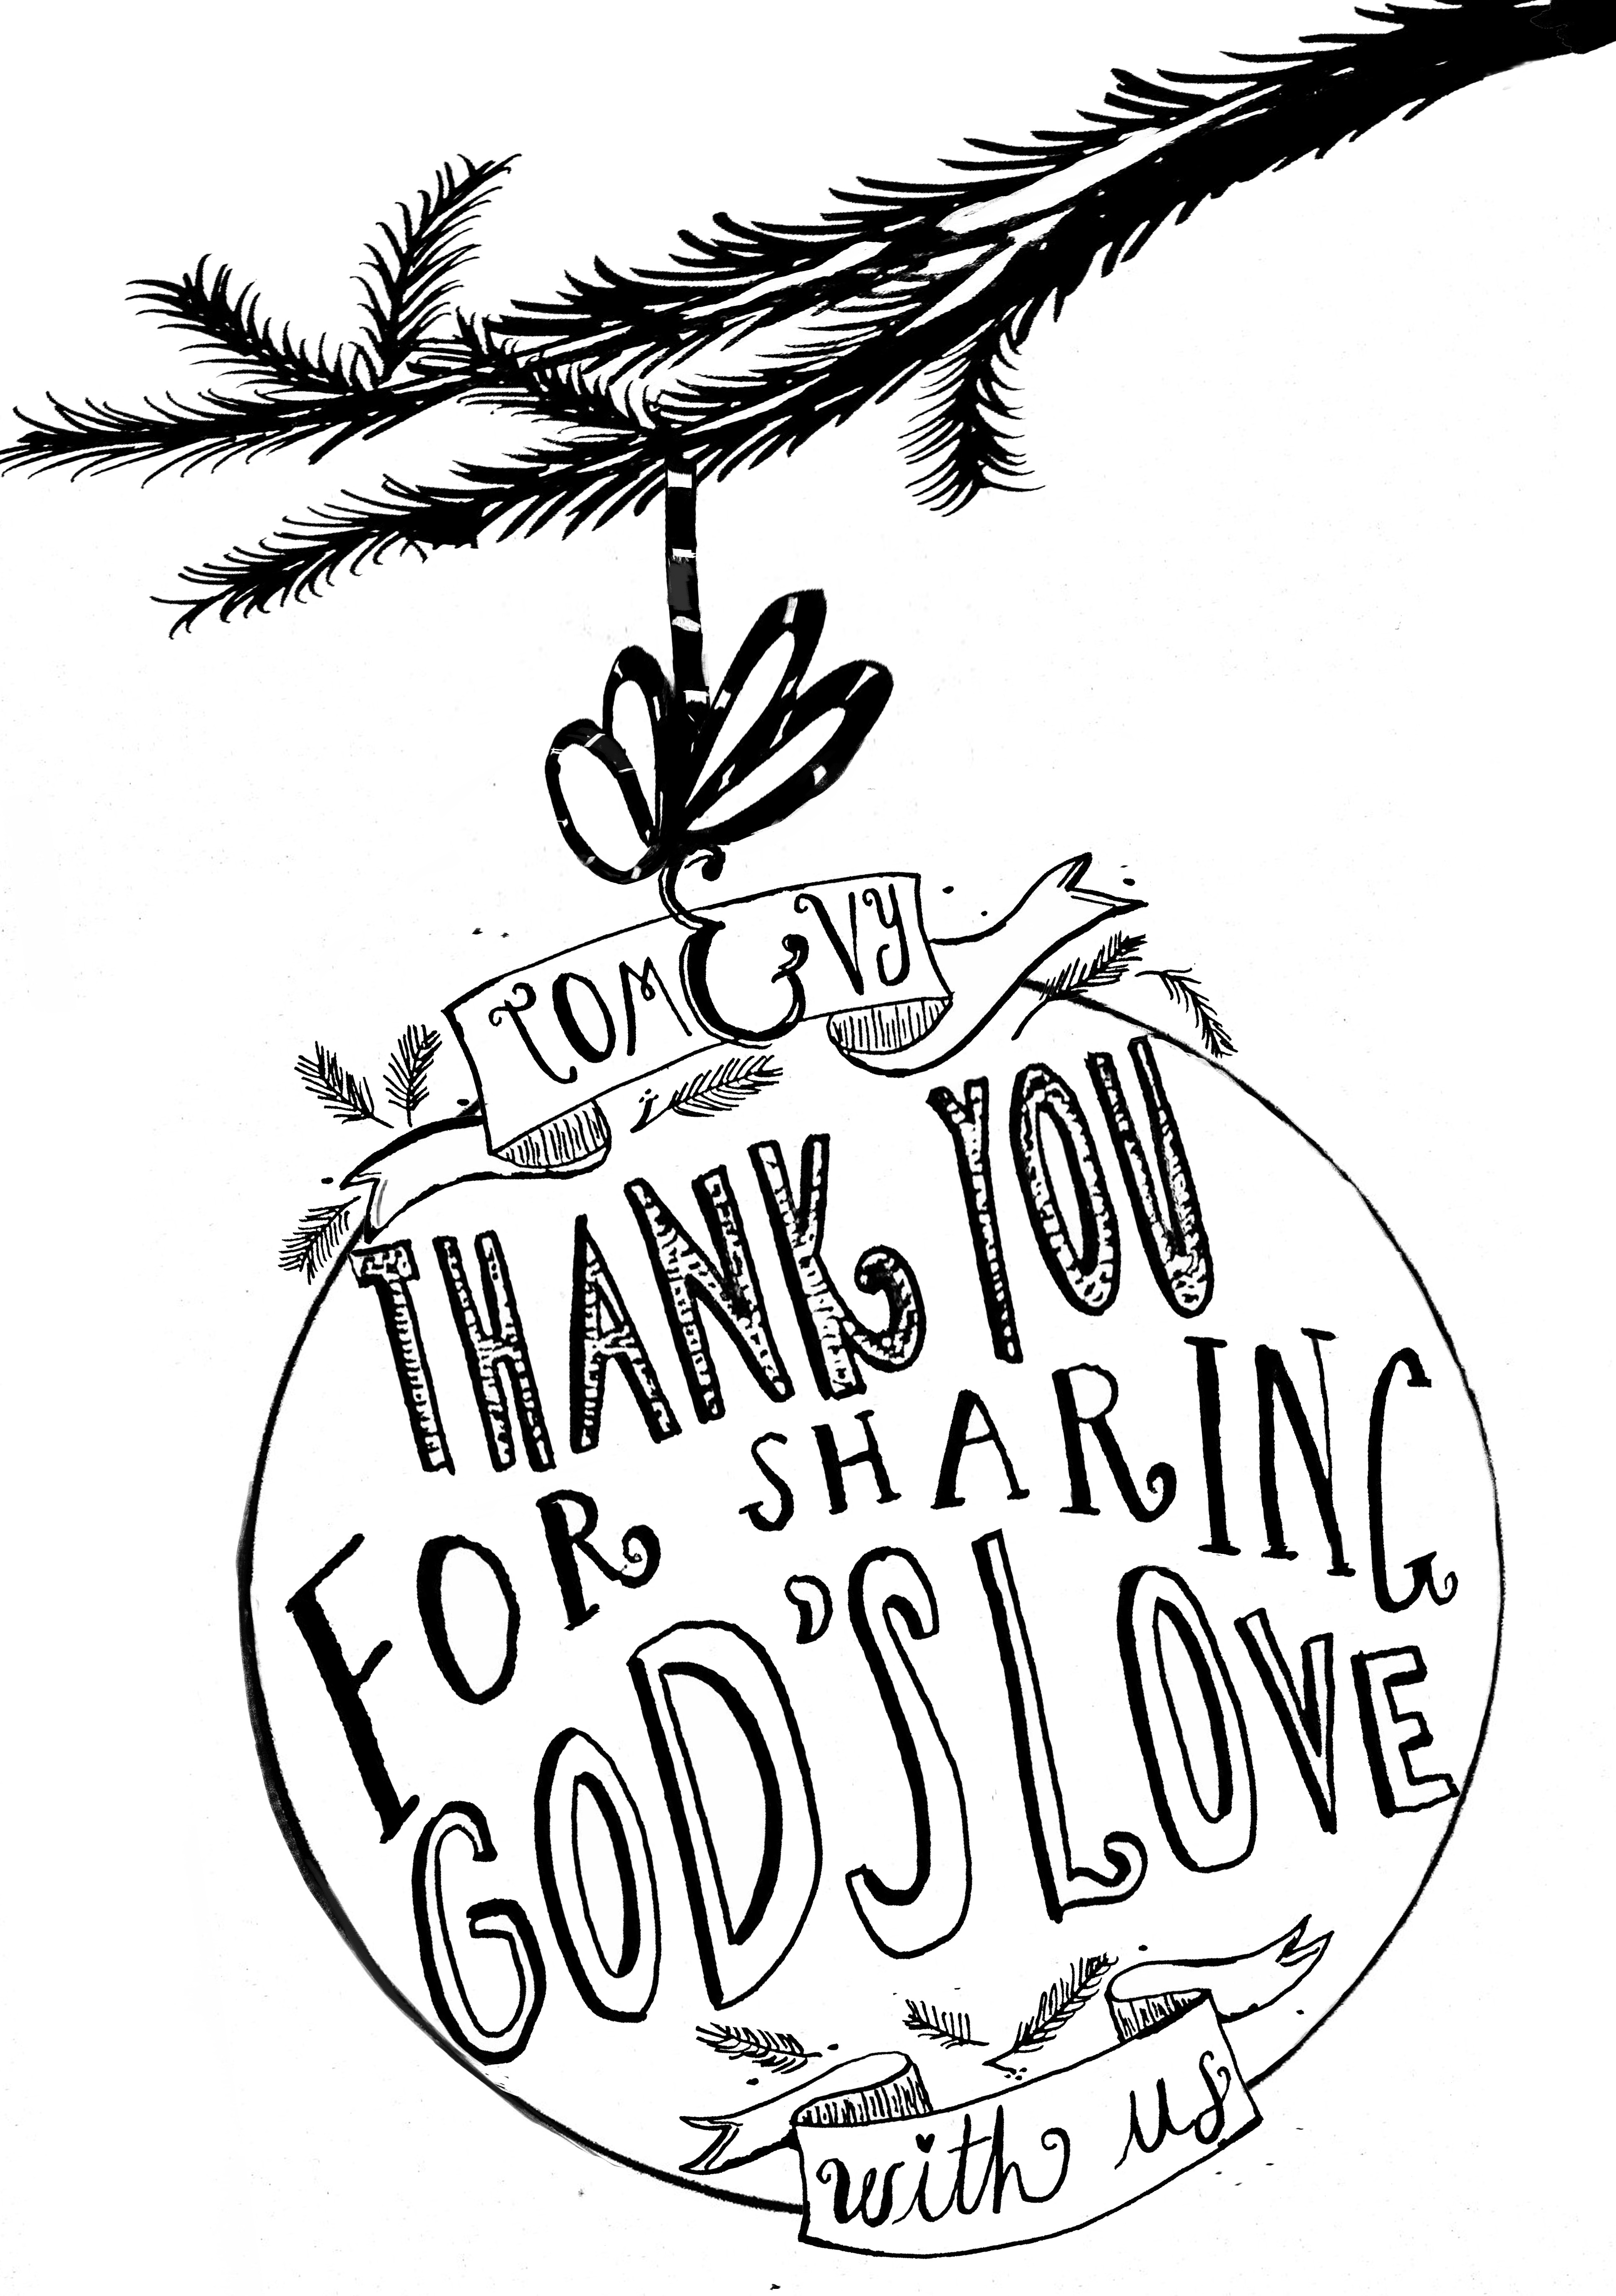 TOM & VY
THANK YOU
FOR SHARING
GOD'S LOVE
with us